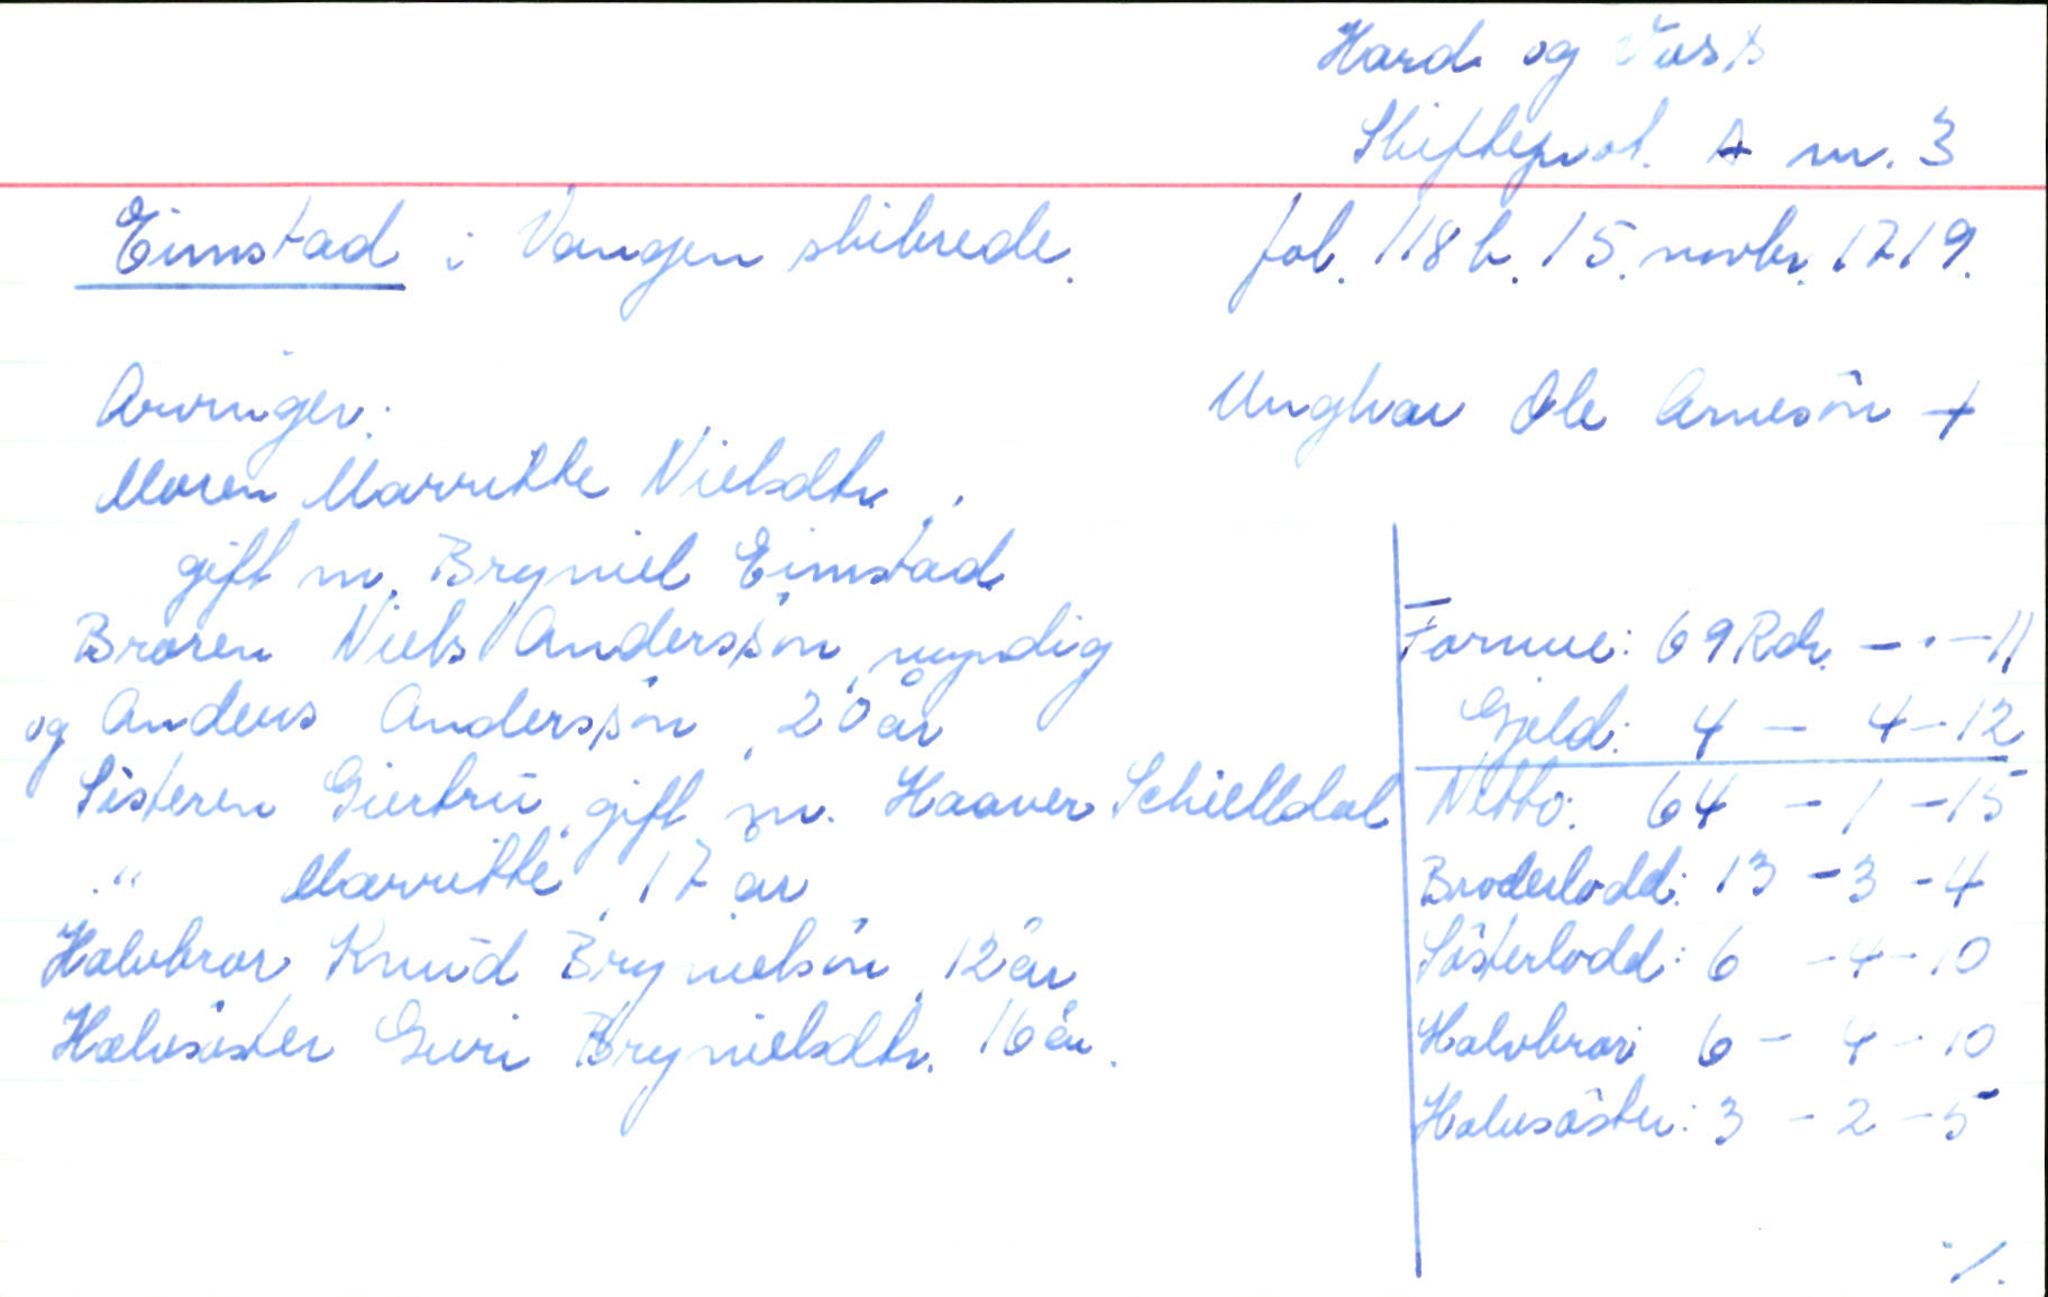 Hard. og Voss
Skifteprot. A nr. 3
Eimstad i Vangen skibrede. fol. 118 b. 15. novbr. 1719.
Arvinger: Ungkar Ole Arnesön +
Moren Marritte Nielsdtr.,
gift m. Bryniel Eimstad
Broren Niels Andersšön, myndig
og Anders Andersšön, 20 år
Sisteren Giertrū, gift m. Haaver Schielldal
" Marritte, 17 år
Halvbror Knūd Brynielsön, 12 år
Halvsöster Guri Brynielsdtr. 16 år.
Formue: 69 Rdr. - . - 11
Gjeld: 4 - 4 - 12
Netto: 64 - 1 - 15
Broderlodd: 13 - 3 - 4
Sösterlodd: 6 - 4 - 10
Halvbror: 6 - 4 - 10
Halvsöster: 3 - 2 - 5
./.